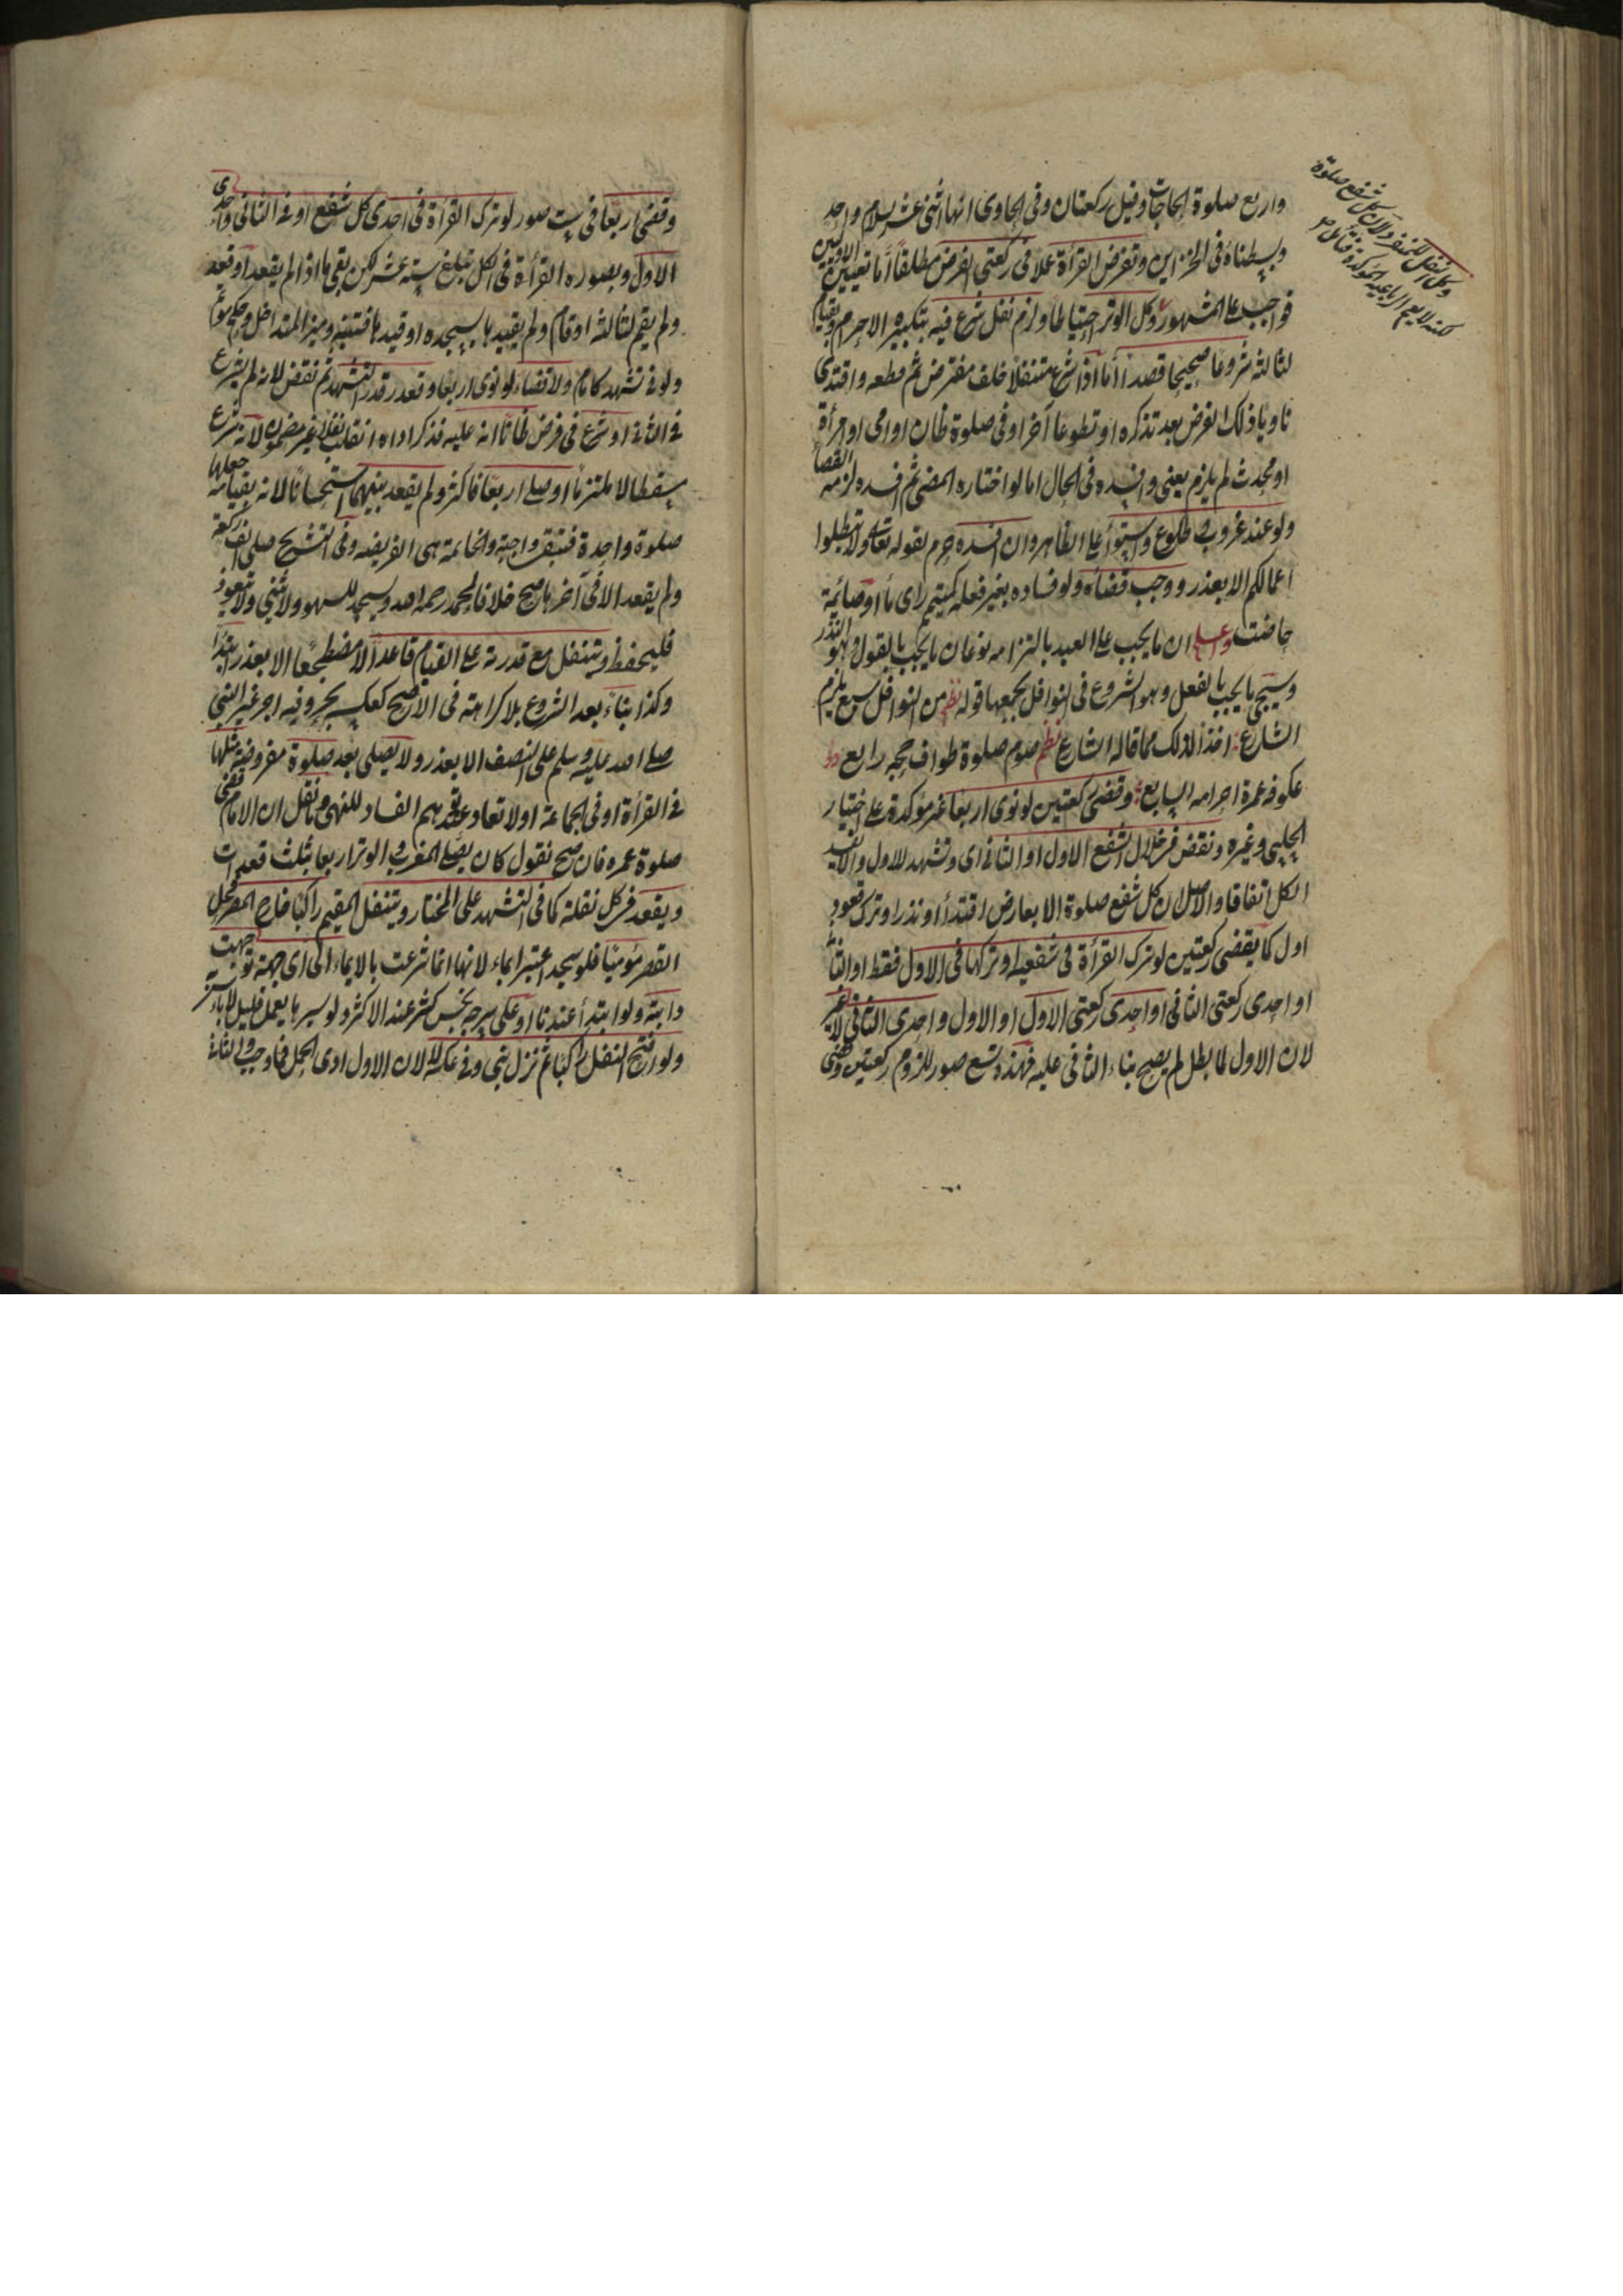 واربع صلوة الحاجات وقيل ركعتان وفى الحاوى انها اثنى عشر بسلام واحد
وبسطناه فى الخزاين وتفرض القرأة عملا فى ركعتى الفرض مطلقاً أما تعيين الاوليين
فواجب على المشهور وكل الوتر احتياطا ولزم نفل شرع فيه بتكبيره الاحرام وبقيام
لثالثة شروعا صحيحا قصداً أما اذا شرع متنفلا خلف مفترض ثم قطعه واقتدى
ناويا ذلك الفرض بعد تذكره او تطوعا آخر او فى صلوة ظان او امى او امرأة
او محدث لم يلزم يعنى وافسده فى الحال اما لو اختاره المضى ثم افسده لزمه القضأ
ولو عند غروب وطلوع واستوأ على الظاهر وان افسده حرم لقوله تعالى ولا تبطلوا
اعمالكم الا بعذر ووجب قضاه ولو فساده بغير فعله كمتيمم راى مأ او صائمة
حاضت واعلم ان ما يجب على العبد بالتزامه نوعان ما يجب بالقول وهو النذر
وسيجئ ما يجب بالفعل وهو الشروع فى النوافل يجمعها قوله نظم من النوافل سبع يلزم
الشارع اخذا لذلك مما قاله الشارع نظم صوم صلوة طواف حجه رابع
عكوفه عمرة احرامه السابع وقضى ركعتين لو نوى اربعا غير مؤكدة على اختيار
الحلبى وغيره ونقض فى خلال الشفع الاول او الثانى اى وتشهد للاول والا يفسد
الكل اتفاقا والاصل ان كل شفع صلوة الا بعارض اقتدأ او نذر او ترك قعود
اول كما يقضى ركعتين لو ترك القرأة فى شفعيه او تركها فى الاول فقط او الثانى
او احدى ركعتى الثانى او احدى ركعتى الاول او الاول واحدى الثانى لا غير
لان الاول لما بطل لم يصح بناء الثانى عليه فهذه تسع صور للزوم ركعتين وقضى
وكل النفل للمنفرد لان كل شفع صلوة
لكنه لا يعم الرباعية المؤكدة فتأمل
وقضى اربعا فى ست صور لو ترك القرأة فى احدى كل شفع او فى الثانى واحدى
الاول وبصوره القرأة فى الكل تبلغ ستة عشر لكن بقى ما اذا لم يقعد او قعد
ولم يقم لثالثة او قام ولم يقيدها بسجده او قيدها فتنبه وميز المتداخل وحكم مؤتم
ولو فى تشهد كامام ولا قضاء لو نوى اربعا وقعد قدر التشهد ثم نقض لانه لم يشرع
فى الثانى او شرع فى فرض ظانا انه عليه فذكر اداه انقلب نفلا غير مضمون لانه شرع
مسقطا لا ملتزما او صلى اربعا فاكثر ولم يقعد بينهما استحسانا لانه بقيامه جعلها
صلوة واحدة فتبقى واجبة والخاتمة هى الفريضه وفى التشريح صلى الف ركعة
ولم يقعد الا فى آخرها صح خلافا لمحمد رحمه الله ويسجد للسهو ولا يثنى ولا يتعوذ
فليحفظ ويتنفل مع قدرته على القيام قاعداً لا مضطجعا الا بعذر ابتدأ
وكذا بناء بعد الشروع بلا كراهته فى الاصح كعكسه بحر وفيه اجر غير النبى
صلى الله عليه وسلم على النصف الا بعذر ولا يصلى بعد صلوة مفروضة مثلها
فى القرأة او فى الجماعة او لا تعاد عند توهم الفساد للنهى وما نقل ان الامام قضى
صلوة عمره فان صح نقول كان يصلى المغرب والوتر اربعا بثلث قعدات
ويقعد فى كل نفله كما فى التشهد على المختار ويتنفل المقيم راكبا خارج المصر محل
القصر مؤميا فلو سجد اعتبر ايماء لانها انما شرعت بالايماء الى اى جهة توجهت
دابته ولو ابتدأ عندنا او على سرجه نجس كثر عند الاكثر ولو سيرها بعمل قليل لا باس
ولو افتتح النفل راكبا ثم نزل بنى وفى عكسه لا لان الاول ادى اكمل مما وجب والثانى